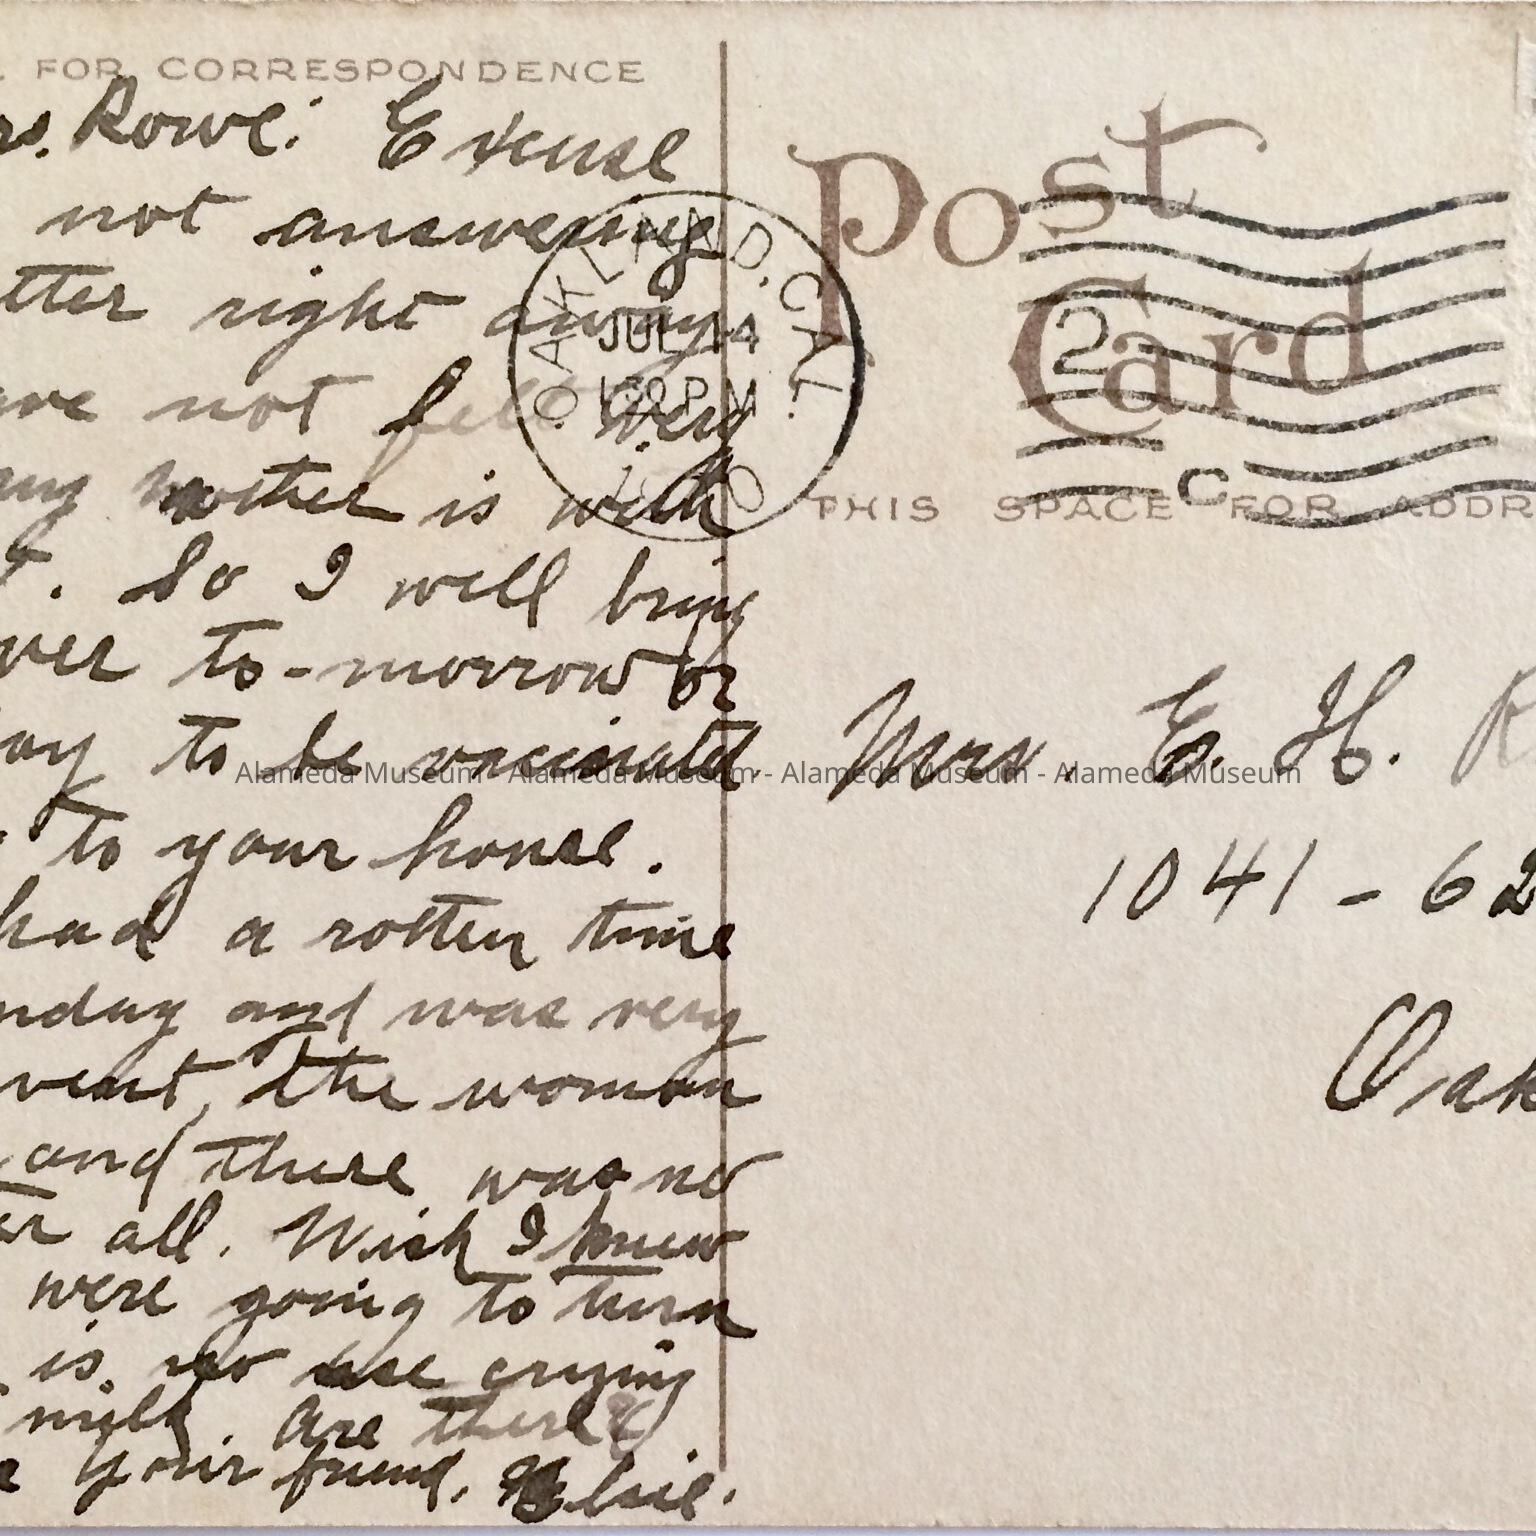 FOR CORRESPONDENCE
rs. Rowe: Excuse
not answering
tter right away
ave not felt very
my mother is with
. So I will bring
ver to-morrow or
ay to be vaccinated
to your house.
had a rotten time
nday and was very
vent, the woman
and there was no
er all. Wish I knew
were going to turn
is no use crying
milk. are there
Your friend, Elsie.
Post
Card
OAKLAND, CAL.
JUL 14
1 30 P M
2
C
THIS SPACE FOR ADDR
Mrs. E. H. R
1041 - 62
Oak
Alameda Museum - Alameda Museum - Alameda Museum - Alameda Museum